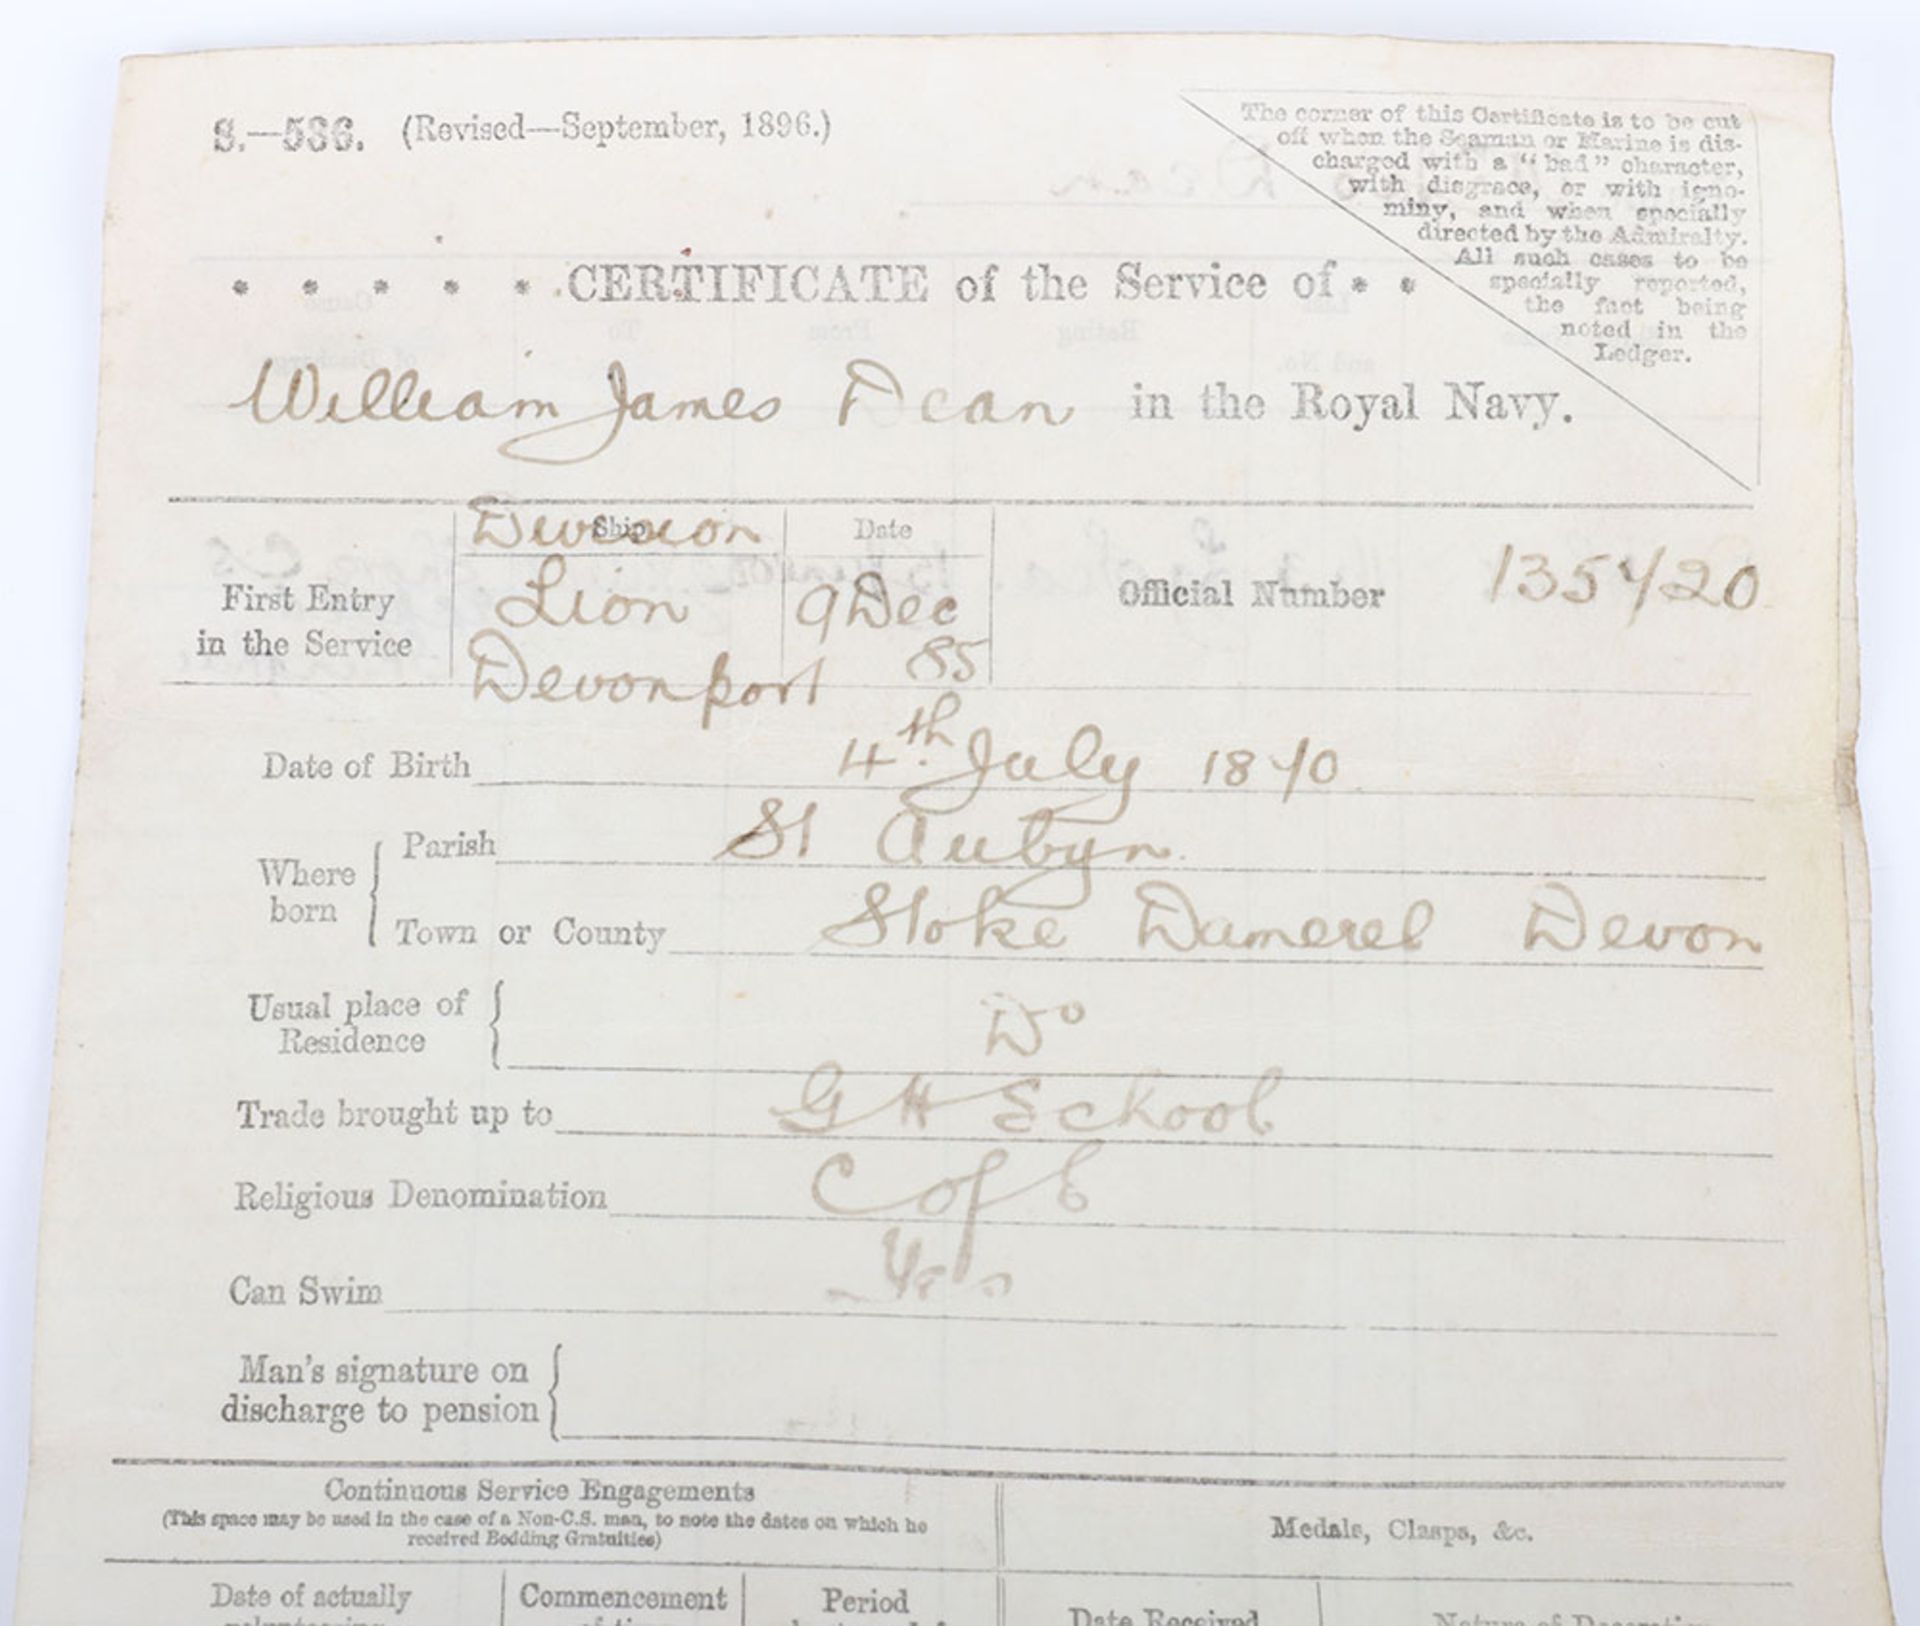 S.—536. (Revised—September, 1896.)
The corner of this Certificate is to be cut
off when the Seaman or Marine is dis-
charged with a "bad" character,
with disgrace, or with igno-
miny, and when specially
directed by the Admiralty.
All such cases to be
specially reported,
the fact being
noted in the
Ledger.
* * * * * CERTIFICATE of the Service of * *
William James Dean in the Royal Navy.
Ship
Date
First Entry
in the Service
Devonport
Lion
9 Dec
85
Official Number
Date of Birth 4th July 1870
Where
born
Parish St Aubyn
Town or County Stoke Damerel Devon
Usual place of
Residence
Do
Trade brought up to G H School
Religious Denomination C of E
Can Swim Yes
Man's signature on
discharge to pension
Continuous Service Engagements
(This space may be used in the case of a Non-C.S. man, to note the dates on which he
received Bedding Gratuities)
Medals, Clasps, &c.
Date of actually
Commencement
Period
Date Received